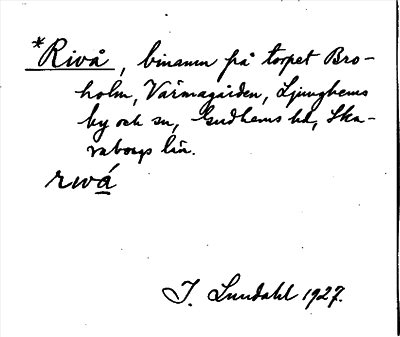 *Rivå, binamn på torpet Bro-
holm, Värmagården, Ljunghems
by och sn, Gudhems hd, Ska-
raborgs län.
rivá
I. Lundahl 1927.